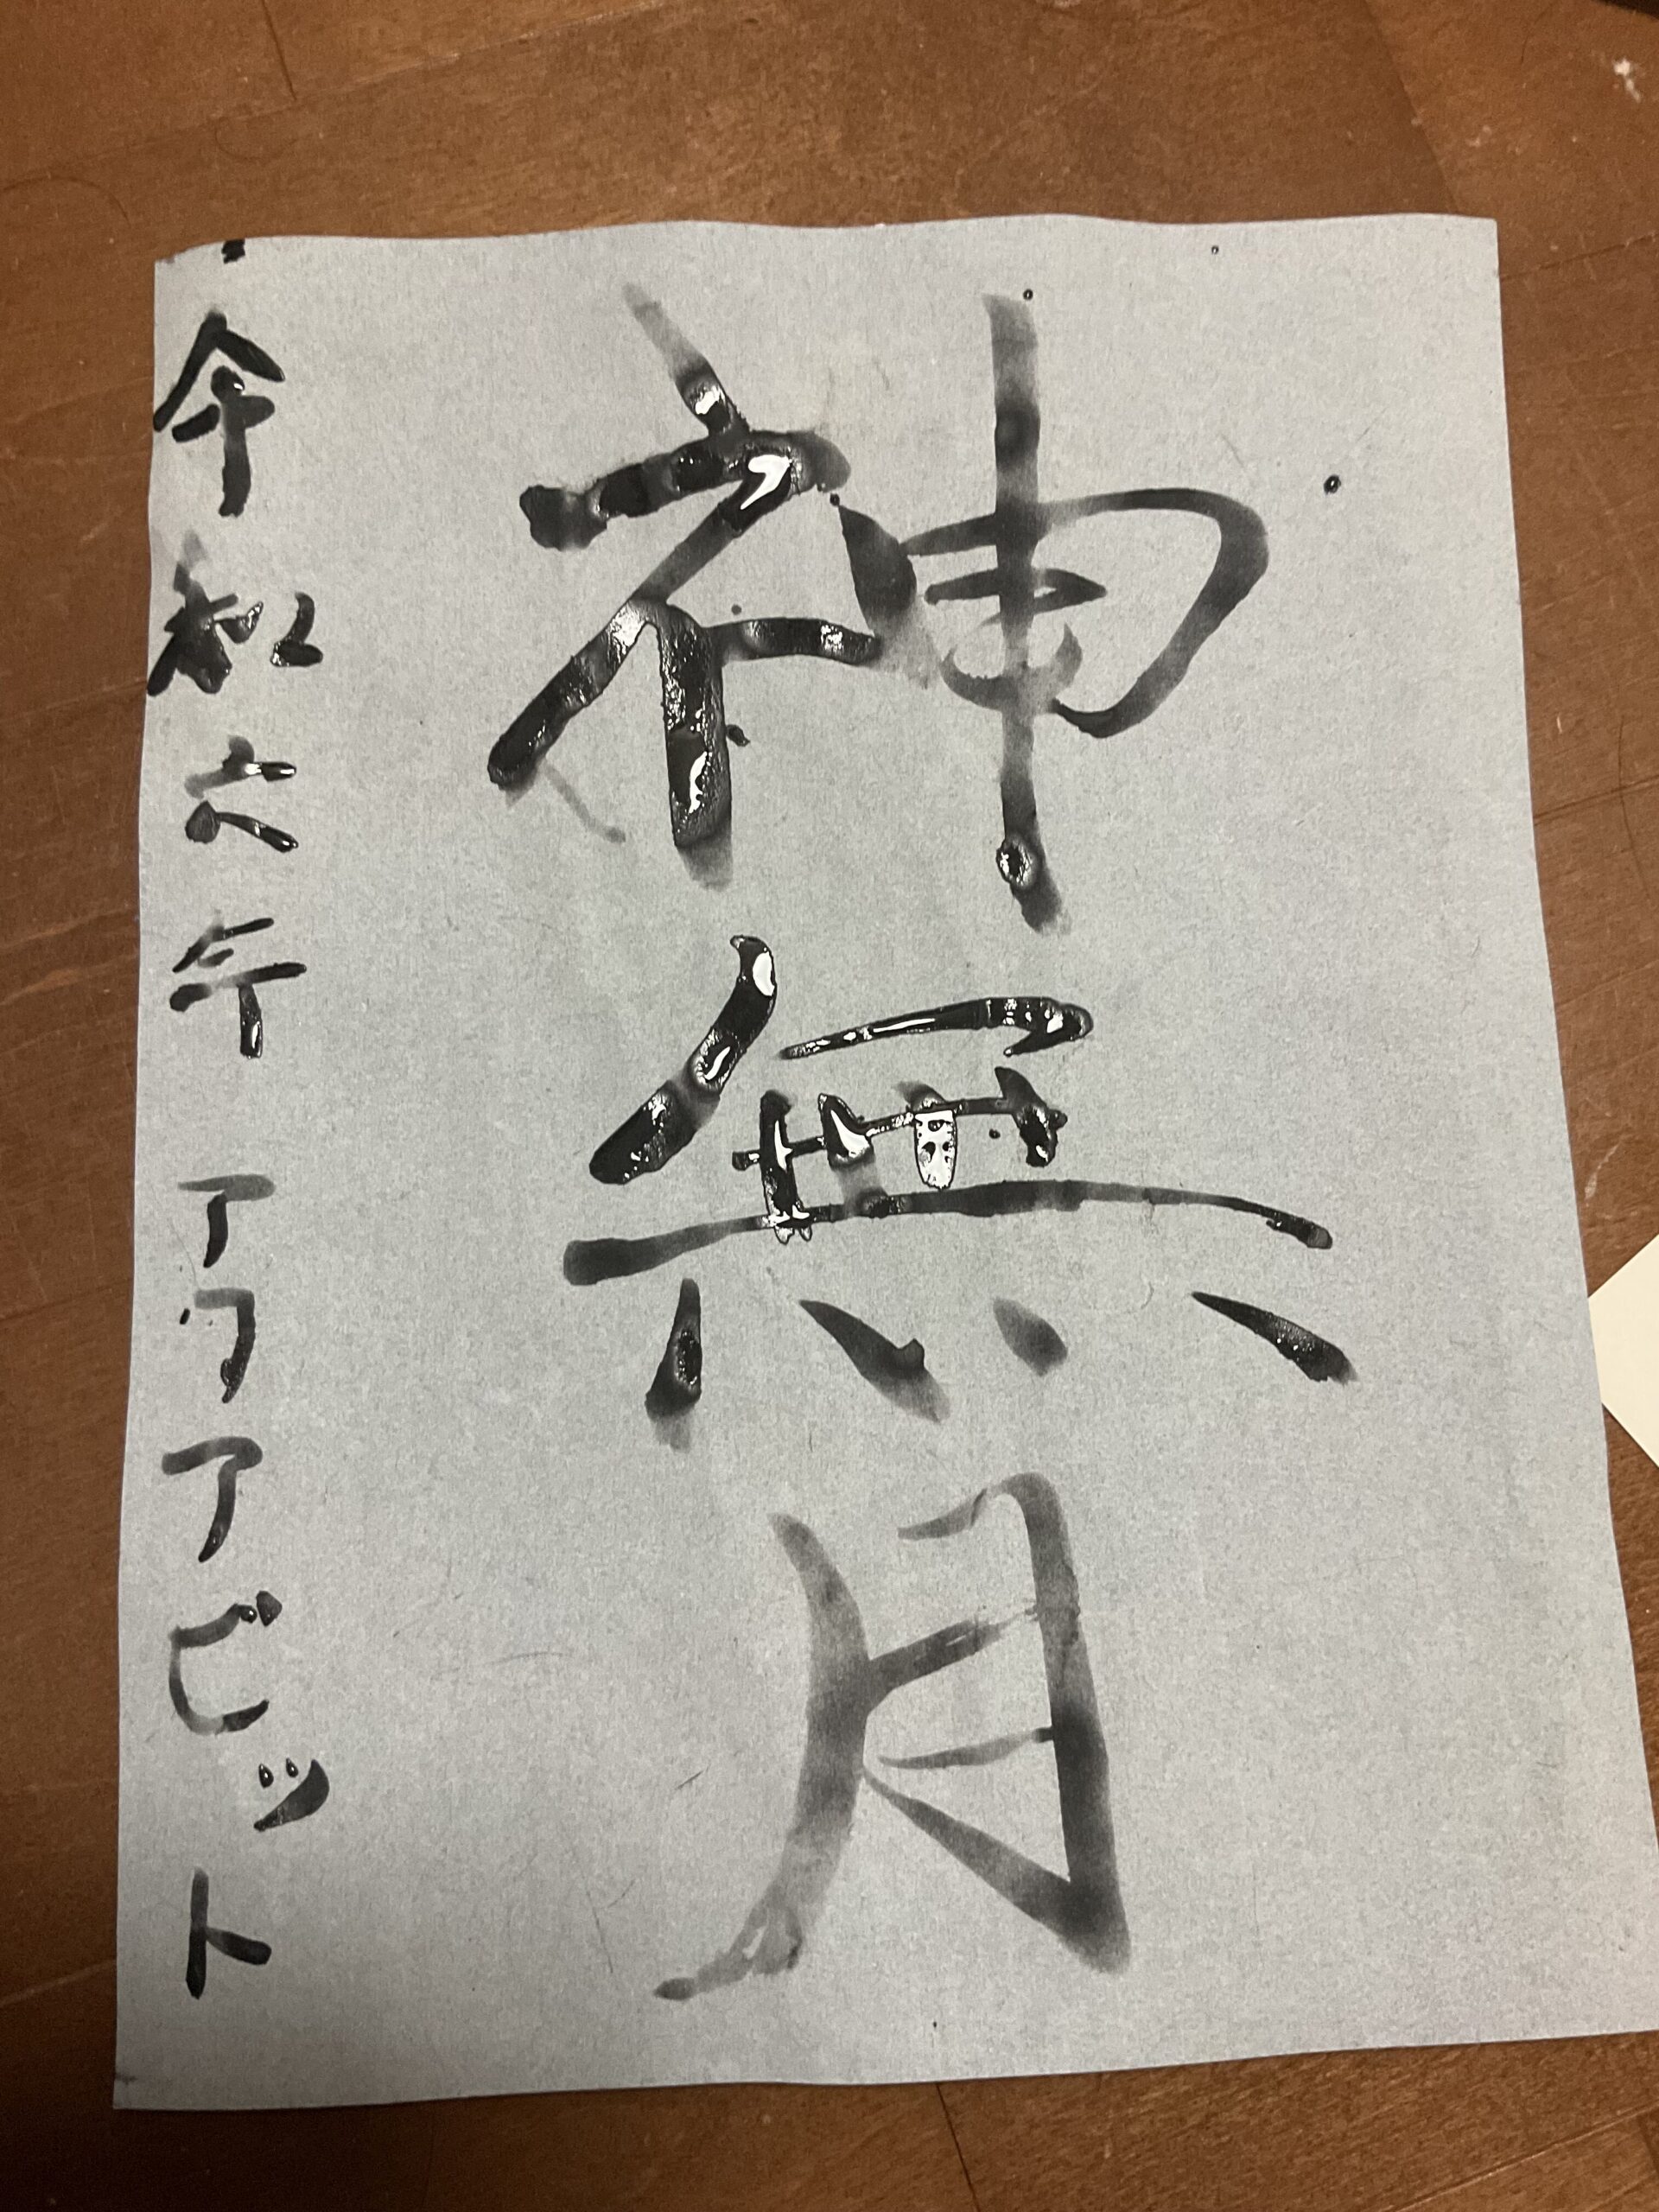 神無月
令和六年 アクアビット